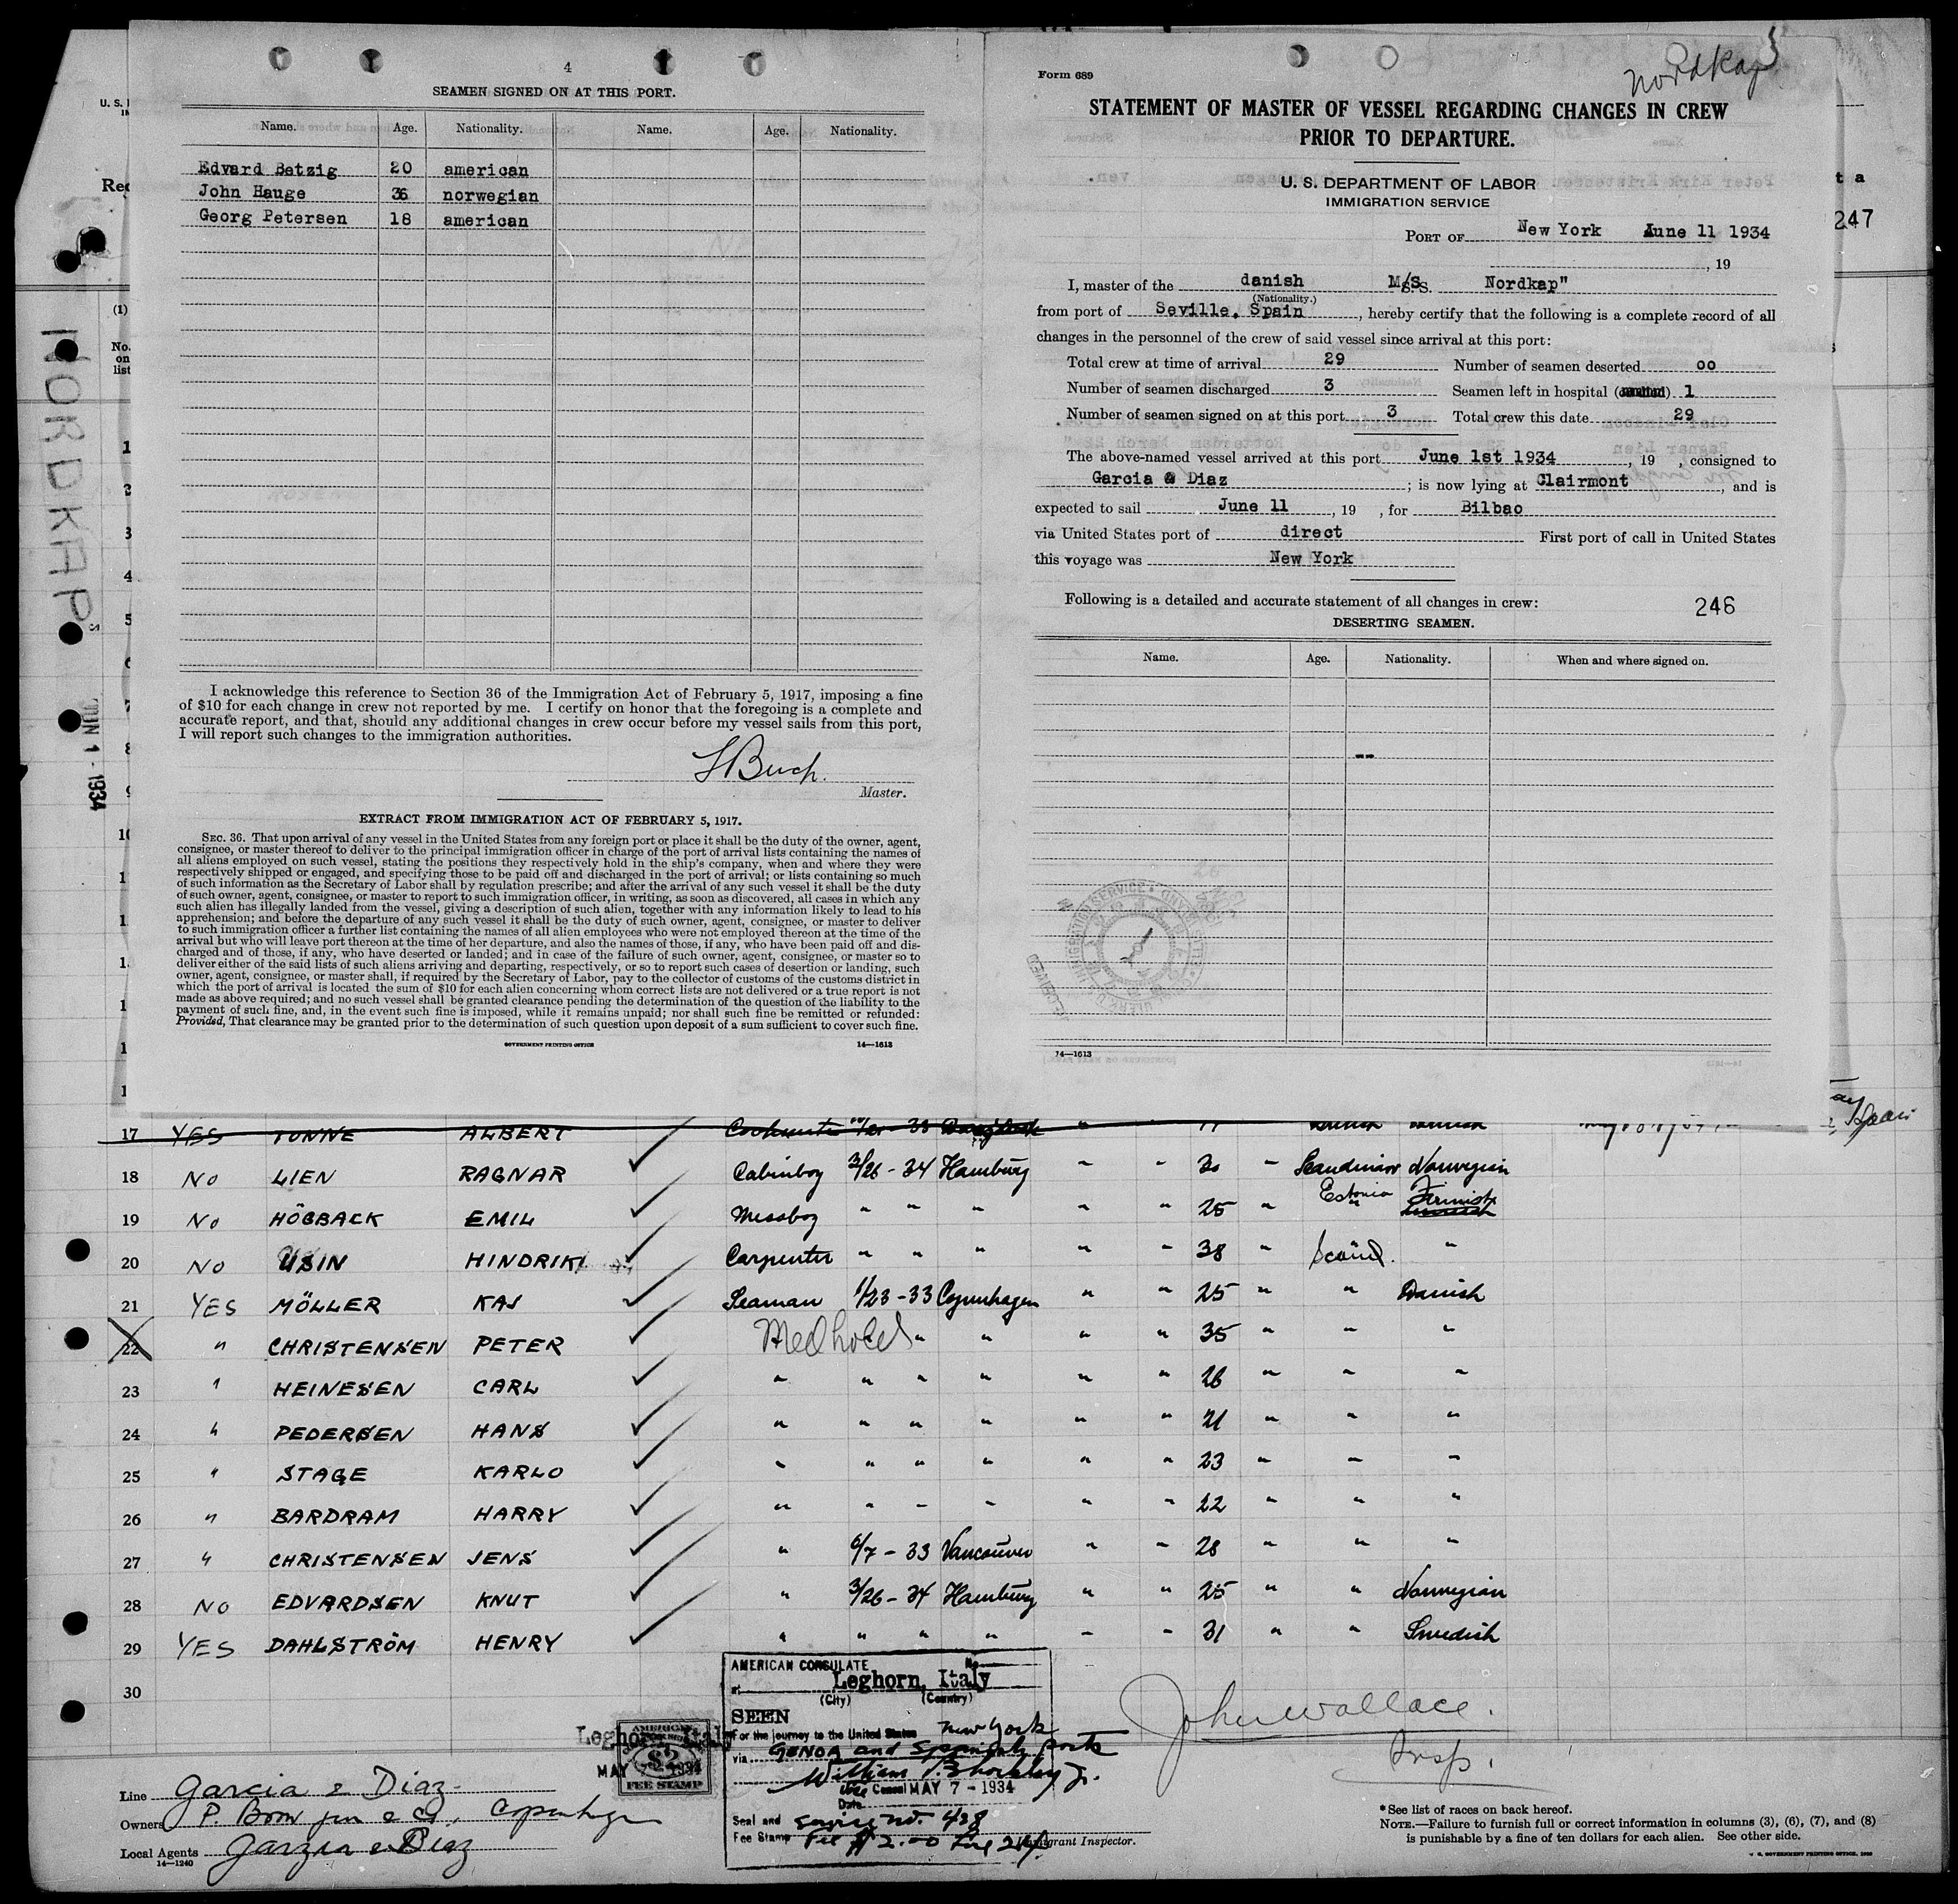 4
SEAMEN SIGNED ON AT THIS PORT.
Name. Age. Nationality. Name. Age. Nationality.
Edvard Betzig 20 american
John Hauge 36 norwegian
Georg Petersen 18 american
I acknowledge this reference to Section 36 of the Immigration Act of February 5, 1917, imposing a fine
of $10 for each change in crew not reported by me. I certify on honor that the foregoing is a complete and
accurate report, and that, should any additional changes in crew occur before my vessel sails from this port,
I will report such changes to the immigration authorities.
Master.
EXTRACT FROM IMMIGRATION ACT OF FEBRUARY 5, 1917.
SEC. 36. That upon arrival of any vessel in the United States from any foreign port or place it shall be the duty of the owner, agent,
consignee, or master thereof to deliver to the principal immigration officer in charge of the port of arrival lists containing the names of
all aliens employed on such vessel, stating the positions they respectively hold in the ship's company, when and where they were
respectively shipped or engaged, and specifying those to be paid off and discharged in the port of arrival; or lists containing so much
of such information as the Secretary of Labor shall by regulation prescribe; and after the arrival of any such vessel it shall be the duty
of such owner, agent, consignee, or master to report to such immigration officer, in writing, as soon as discovered, all cases in which any
such alien has illegally landed from the vessel, giving a description of such alien, together with any information likely to lead to his
apprehension; and before the departure of any such vessel it shall be the duty of such owner, agent, consignee, or master to deliver
to such immigration officer a further list containing the names of all alien employees who were not employed thereon at the time of the
arrival but who will leave port thereon at the time of her departure, and also the names of those, if any, who have been paid off and dis-
charged and of those, if any, who have deserted or landed; and in case of the failure of such owner, agent, consignee, or master so to
deliver either of the said lists of such aliens arriving and departing, respectively, or so to report such cases of desertion or landing, such
owner, agent, consignee, or master shall, if required by the Secretary of Labor, pay to the collector of customs of the customs district in
which the port of arrival is located the sum of $10 for each alien concerning whom correct lists are not delivered or a true report is not
made as above required; and no such vessel shall be granted clearance pending the determination of the question of the liability to the
payment of such fine, and, in the event such fine is imposed, while it remains unpaid; nor shall such fine be remitted or refunded:
Provided, That clearance may be granted prior to the determination of such question upon deposit of a sum sufficient to cover such fine.
GOVERNMENT PRINTING OFFICE 14—1613
Nordkap
Form 689
STATEMENT OF MASTER OF VESSEL REGARDING CHANGES IN CREW
PRIOR TO DEPARTURE.
U. S. DEPARTMENT OF LABOR
IMMIGRATION SERVICE
PORT OF New York June 11 1934
, 19
I, master of the danish M/S Nordkap"
(Nationality.)
from port of Seville, Spain, hereby certify that the following is a complete record of all
changes in the personnel of the crew of said vessel since arrival at this port:
Total crew at time of arrival 29 Number of seamen deserted oo
Number of seamen discharged 3 Seamen left in hospital 1
Number of seamen signed on at this port 3 Total crew this date 29
The above-named vessel arrived at this port June 1st 1934, 19 , consigned to
Garcia & Diaz; is now lying at Clairmont, and is
expected to sail June 11, 19 , for Bilbao
via United States port of direct First port of call in United States
this voyage was New York
Following is a detailed and accurate statement of all changes in crew: 246
DESERTING SEAMEN.
Name. Age. Nationality. When and where signed on.
--
14—1613
t a
247
NORDKAP
JUN 1 - 1934
(1)
No.
on
list
17 YES TONNE ALBERT
18 NO LIEN RAGNAR Cabinboy 3/26 - 34 Hamburg " " 30 " Scandinav Norwegian
19 NO HÖGBACK EMIL Messboy " " " " " 25 " Estonia Finnish
20 NO USIN HINDRIK Carpenter " " " " " 38 " Scand. "
21 YES MÖLLER KAJ Seaman 1/23 - 33 Copenhagen " " 25 " " Danish
22 " CHRISTENSEN PETER " " " " 35 " " "
23 " HEINESEN CARL " " " " " " 26 " " "
24 " PEDERSEN HANS " " " " " " 21 " " "
25 " STAGE KARLO " " " " " " 23 " " "
26 " BARDRAM HARRY " " " " " " 22 " " "
27 " CHRISTENSEN JENS " 6/7 - 33 Vancouver " " 28 " " "
28 NO EDVARDSEN KNUT " 3/26 - 34 Hamburg " " 25 " " Norwegian
29 YES DAHLSTRÖM HENRY " " " " " " 31 " " Swedish
30
AMERICAN CONSULATE No.
at Leghorn, Italy
(City) (Country)
SEEN
For the journey to the United States New York
via GENOA and Spanish ports
William
Vice Consul MAY 7 - 1934
Date
Seal and Service No. 428
Fee Stamp Fee $2.00
Immigrant Inspector.
Leghorn, Italy
MAY 7 1934
AMERICAN
$2
FEE STAMP
John Wallace.
Insp.
Line Garcia & Diaz
Owners P. Copenhagen
Local Agents Garzia & Diaz
14—1240
*See list of races on back hereof.
NOTE.—Failure to furnish full or correct information in columns (3), (6), (7), and (8)
is punishable by a fine of ten dollars for each alien. See other side.